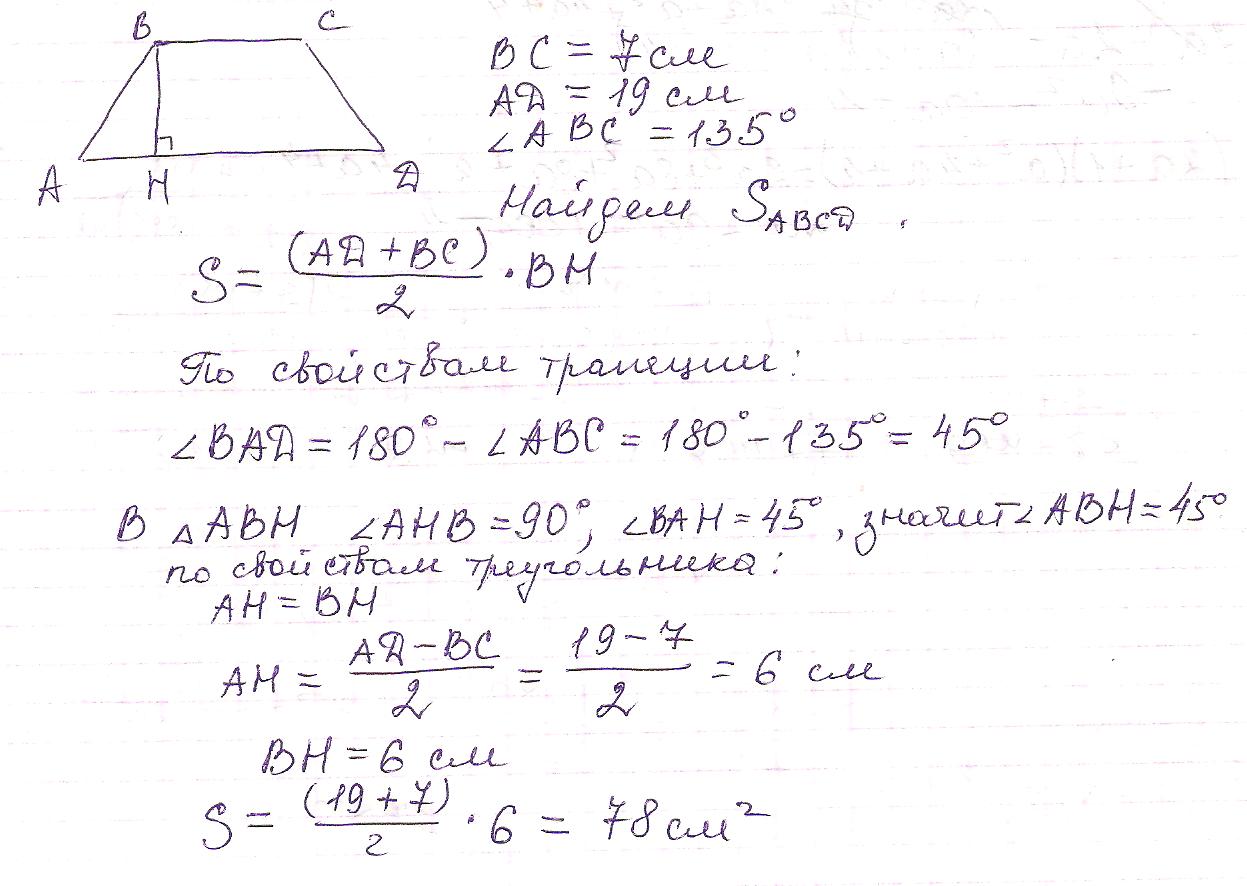 B C
A H D
BC = 7 см
AD = 19 см
∠ABC = 135°
Найдем S_ABCD .
S = (AD + BC)/2 · BH
По свойствам трапеции:
∠BAD = 180° - ∠ABC = 180° - 135° = 45°
В △ABH ∠AHB = 90°, ∠BAH = 45°, значит ∠ABH = 45°
по свойствам треугольника:
AH = BH
AH = (AD - BC)/2 = (19 - 7)/2 = 6 см
BH = 6 см
S = (19 + 7)/2 · 6 = 78 см²